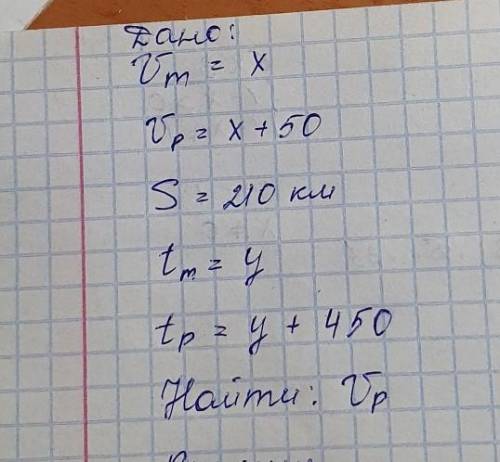 Дано:
Vт = x
Vр = x + 50
S = 210 км
tт = y
tр = y + 450
Найти: Vр